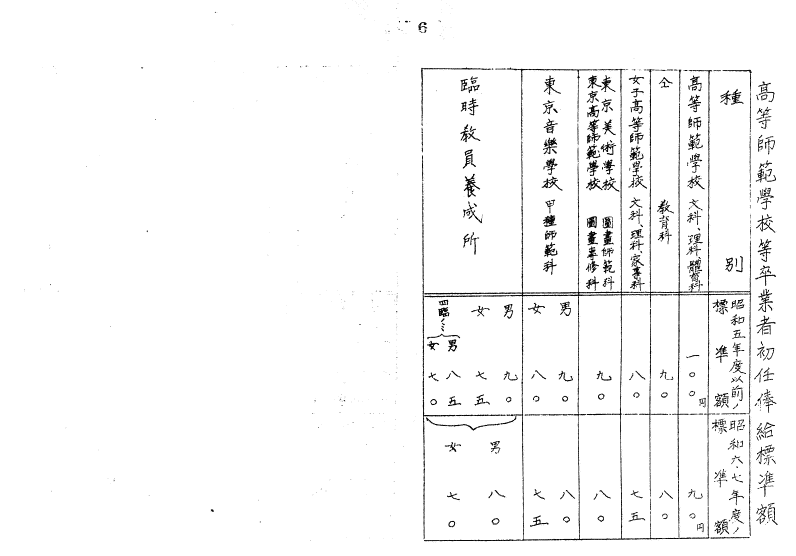 6
高等師範學校等卒業者初任俸給標準額
種別
昭和五年度以前ノ
標準額
昭和六、七年度ノ
標準額
高等師範學校 文科、理科、體育科
一〇〇円
九〇円
仝 教育科
九〇
八〇
女子高等師範學校 文科、理科、家事科
八〇
七五
東京美術學校 圖畫師範科
東京高等師範學校 圖畫專修科
九〇
八〇
東京音樂學校 甲種師範科
男 九〇
女 八〇
八〇
七五
臨時教員養成所
男 九〇
女 七五
四臨ノミ
男 八五
女 七〇
男 八〇
女 七〇